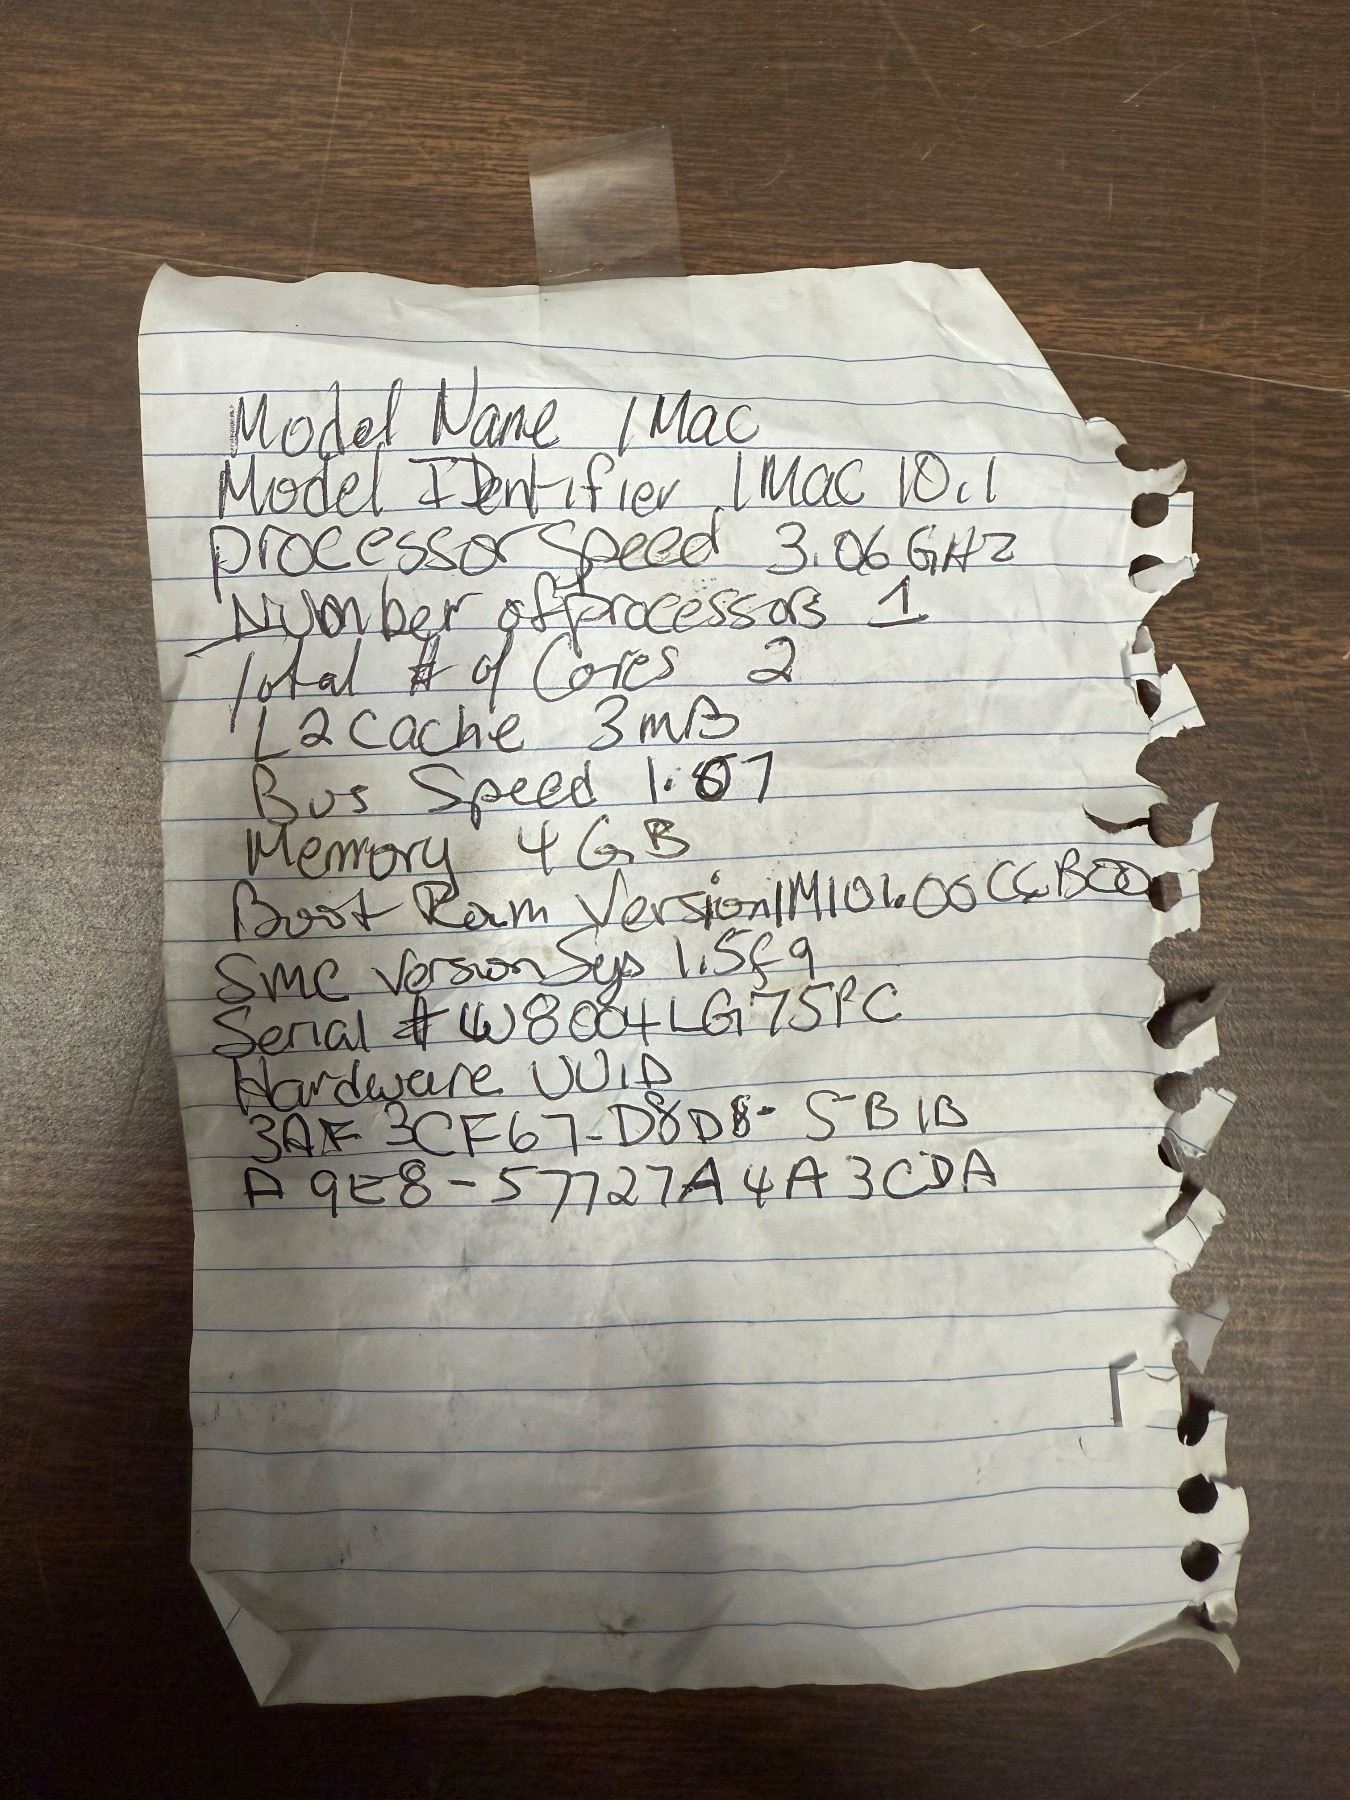 Model Name IMac
Model IDentifier IMac 10.1
processor Speed 3.06 GHz
Number of processors 1
Total # of Cores 2
L2 Cache 3mB
Bus Speed 1.07
Memory 4GB
Boot Ram Version IM101.00CC.B00
SMC Version Sys 1.5f9
Serial # W8004LG75PC
Hardware UUID
3AF3CF67-D8D8-5B1B
A9E8-57727A4A3CDA